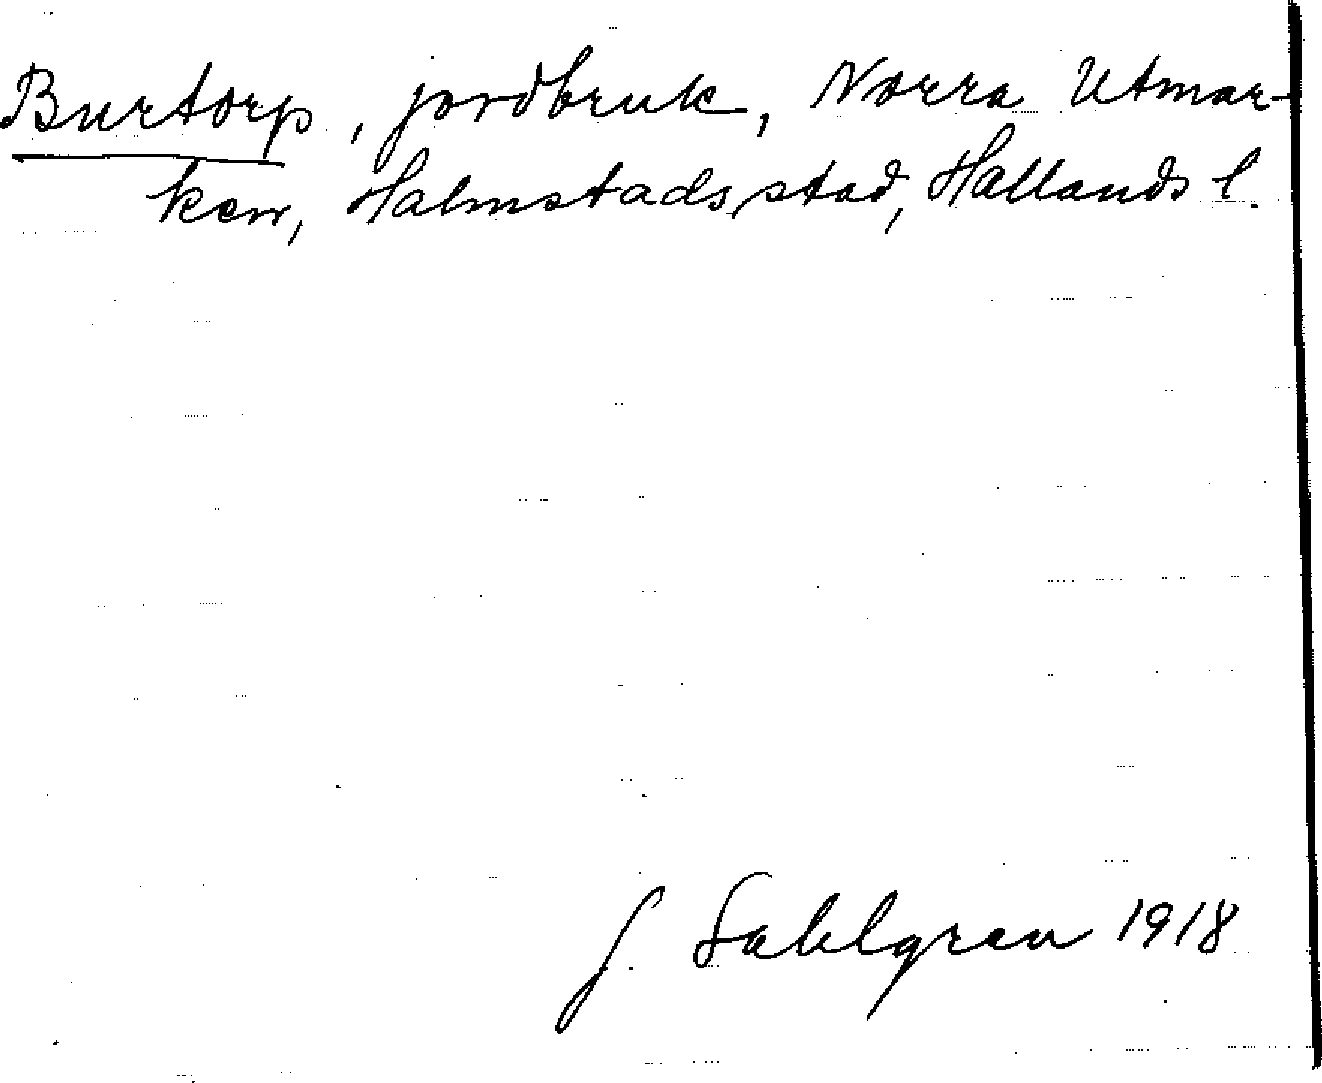 Burtorp, jordbruk, Norra Utmar-
ken, Halmstads stad, Hallands l.
J. Sahlgren 1918